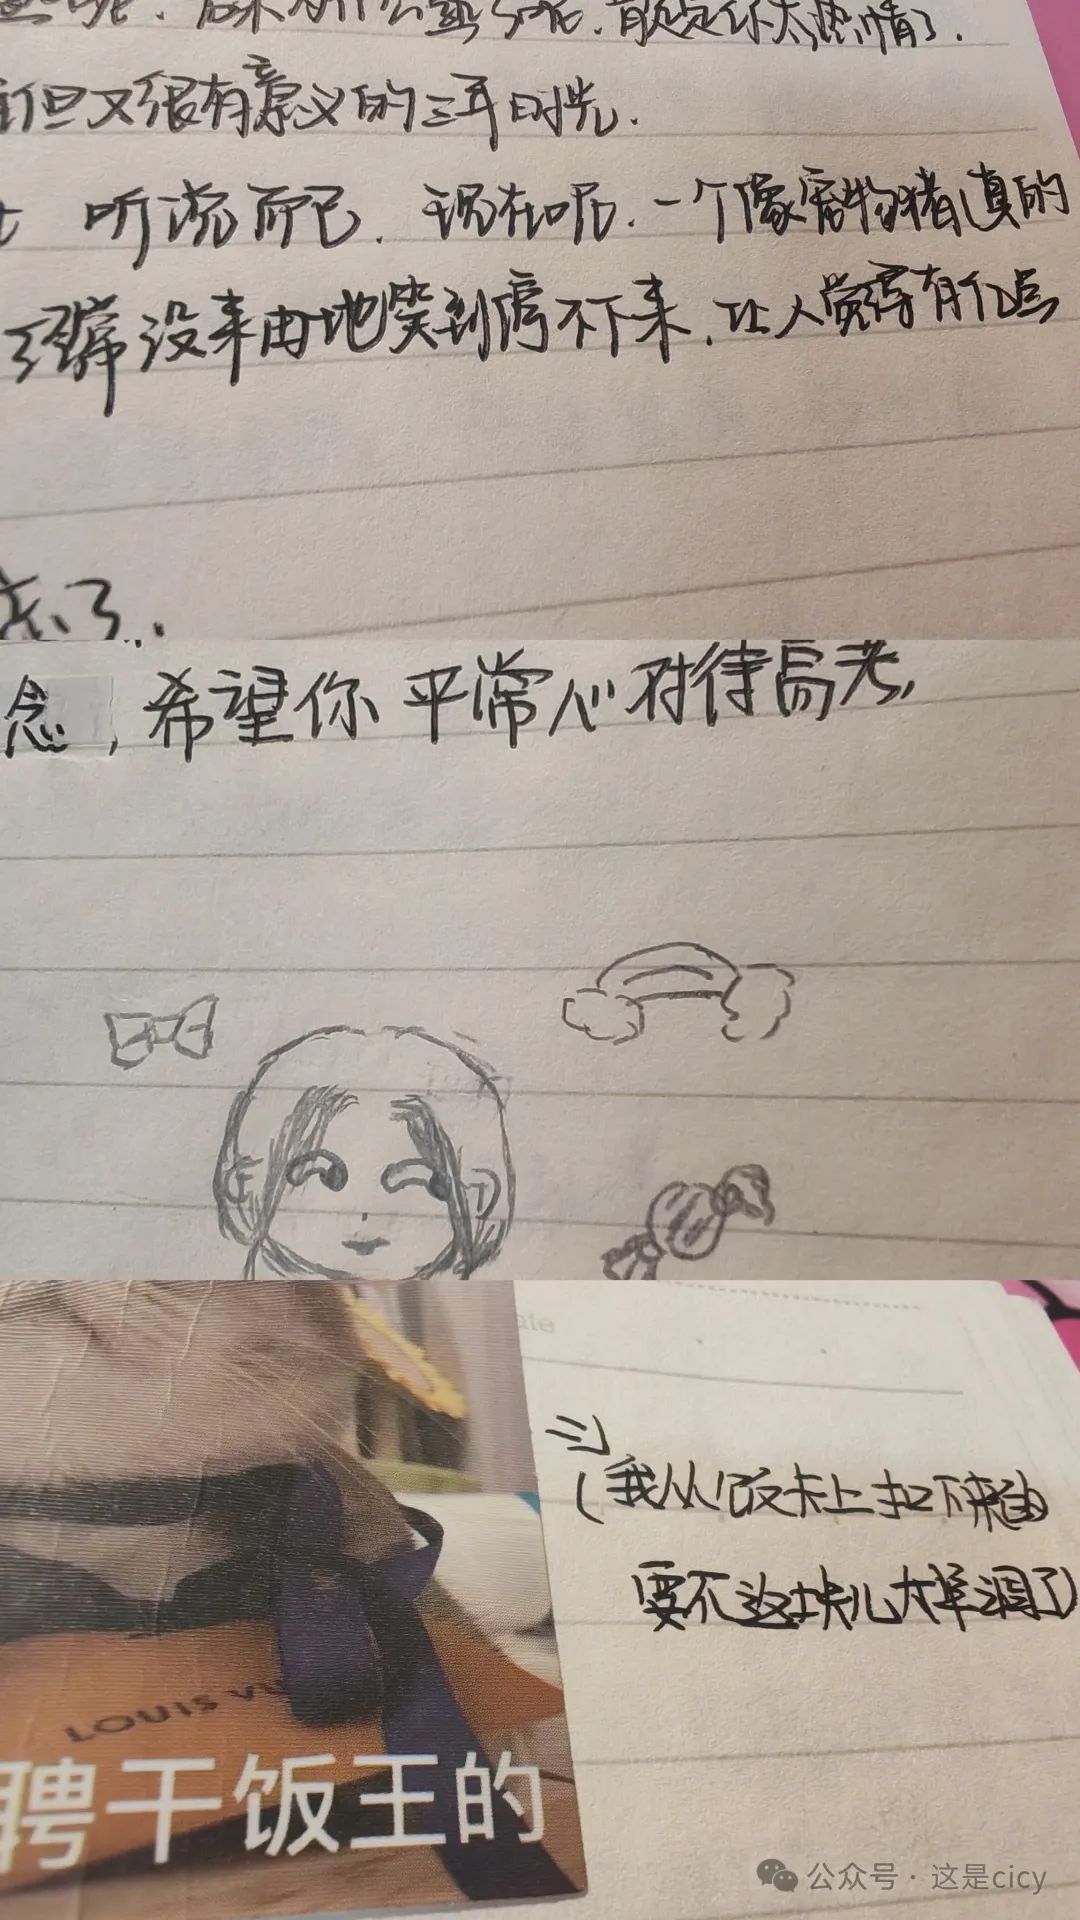 后来为什么熟了呢.肯定你太热情了.
但又很有意义的三年时光.
听说而已.现在呢.一个像宠物猪,真的
经常没来由地笑到停不下来.让人觉得有亿点
了.
念,希望你平常心对待高考,
ate
(我从饭卡上扣下来的
要不这块儿太单调了)
LOUIS VU
聘干饭王的
公众号·这是cicy